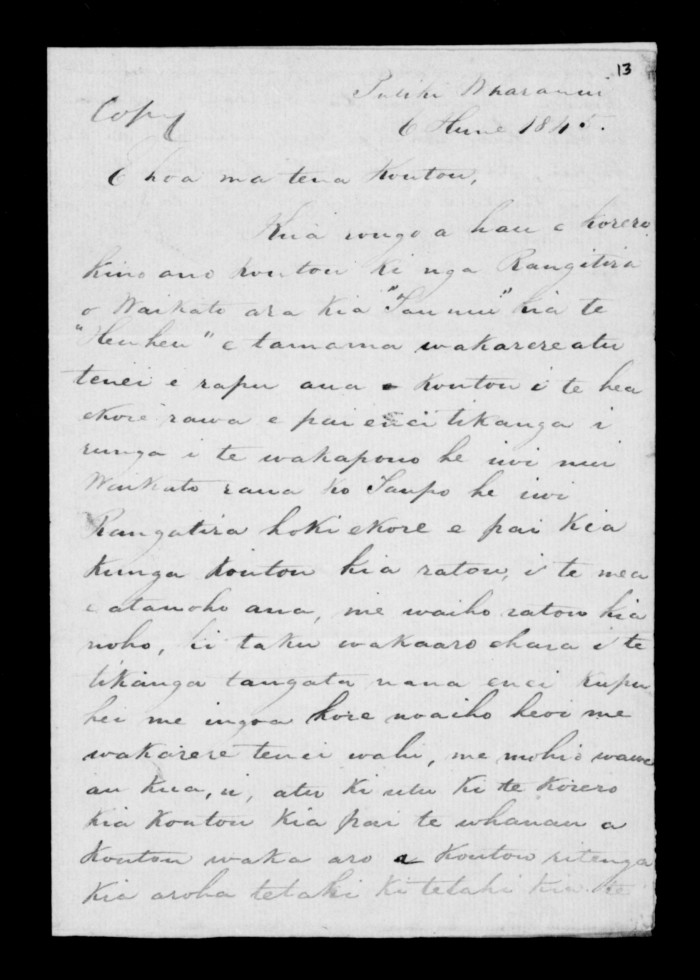 13
Wharanui
Copy
6 Hune 1845.
E hoa ma tena Koutou,
Kua rongo a hau e Korero
kino ano koutou ki nga Rangitira
o Waikato ara kia "Taumu" kia te
"Heuheu" e tamama wakarereatu
tenei e rapu ana e koutou i te hea
ekore rawa e pai enei tikanga i
runga i te wakapono he iwi nui
Waikato raua ko Taupo he iwi
Rangatira hoki ekore e pai kia
kunga koutou kia ratou, i te mea
e atanoho ana, me waiho ratou kia
noho, ki taku wakaaro ehara i te
tikanga tangata nana enei kupu
hei me ingoa kore noaiho heoi me
wakarere tenei wahi, me mohio wawe
au Kua, u, atu ki utu ki te Korero
kia Koutou Kia pai te whanau a
Koutou waka aro a Koutou ritenga
Kia aroha tetahi ki tetahi kia te